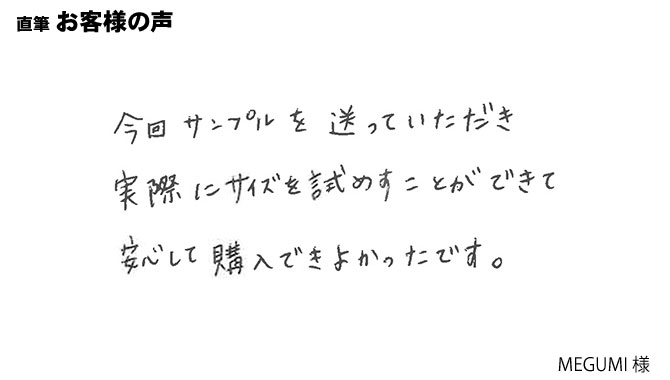 直筆 お客様の声
今回 サンプルを 送っていただき
実際にサイズを試めすことができて
安心して 購入できよかったです。
MEGUMI 様